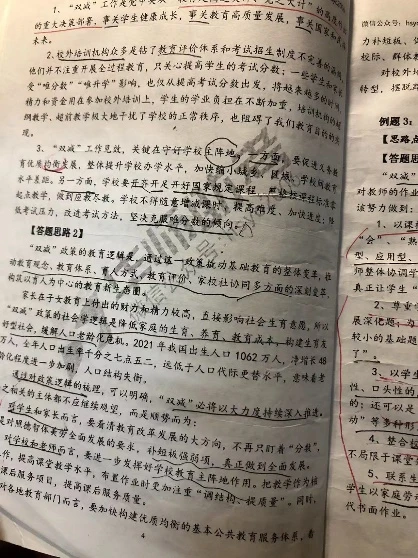 1、"双减"工作是党中央
的重大决策部署，事关学生健康成长，事关教育高质量发展，事关国家和民
未来。
2、校外培训机构众多是钻了教育评价体系和考试招生制度不完善的
他们并不注重开展全过程教育，只关心提高学生的考试分数；一些学生和
受"难分数""难升学"影响，也仅从提高考试分数出发，将越来越多的时间、
精力和资金用在参加校外培训上，学生的学业负担在不断加重，培训机构的超
纲教学、超前教学极大地干扰了学校的正常秩序，也阻碍了我们教育目的的实
现。
3、"双减"工作见效，关键在守好学校主阵地。一方面，要促进义务教
育优质均衡发展，整体提升学校办学水平，加快缩小城乡、区域、学校间教育
水平差距。另一方面，学校要开齐开足开好国家规定课程，严格按课程标准零
起点教学，做到应教尽教，学校不得随意增减课时、提高难度、加快进度；降
低考试压力，改进考试方法，坚决克服唯分数的倾向。
【答题思路2】
"双减"政策的教育逻辑是，通过这一政策撬动基础教育的整体变革，推
动教育观念、教育体系、育人方式、教育评价、家校社协同多方面的深刻变革，
构筑以育人为中心的教育新生态圈。
家长在子女教育上付出的财力和精力较高，直接影响社会生育意愿，所以
"双减"政策的社会学逻辑是降低家庭的生育、养育、教育成本，构建生育友
好型社会，缓解人口老龄化危机。2021年我国出生人口1062万人，净增长48
万人，全年人口出生率千分之七点五二，远低于人口代际更替水平，意味着老
龄化程度进一步加剧，人口结构失衡。
通过对政策逻辑的梳理，可以明确，"双减"必将以大力度持续深入推进。
之相关的主体都不应继续观望，而是顺势而为：
对学生和家长而言，要看清教育改革发展的大方向，不再只盯着"分数"，
是对照德智体美劳全面发展的要求，补短板强弱项，真正做到全面发展。
对学校和老师而言，要进一步发挥好学校教育主阵地作用。把教学作为核
工作，提高课堂教学水平，布置作业时更加注重"调结构、提质量"。同时，
课后服务项目，提高课后服务质量。
对各地教育部门而言，要加快构建优质均衡的基本公共教育服务体系，着
4
微信公众号：
力补短板、
校际、群体
对校外培
转型，摆脱
例题3：
【思路点
【答题思
"双减"
对教师的作业
该努力做到：
1、以课
"会"、"熟
型、应用型、
师整体协调
真正让学生"
2、尊重
展深化题，
较小的基础题
了"。
3、以学生
性、口头性的
的；还可以是
动"等多种形
4、整合
不局限于课
5、联系生
学生以家庭劳
代书面作业。